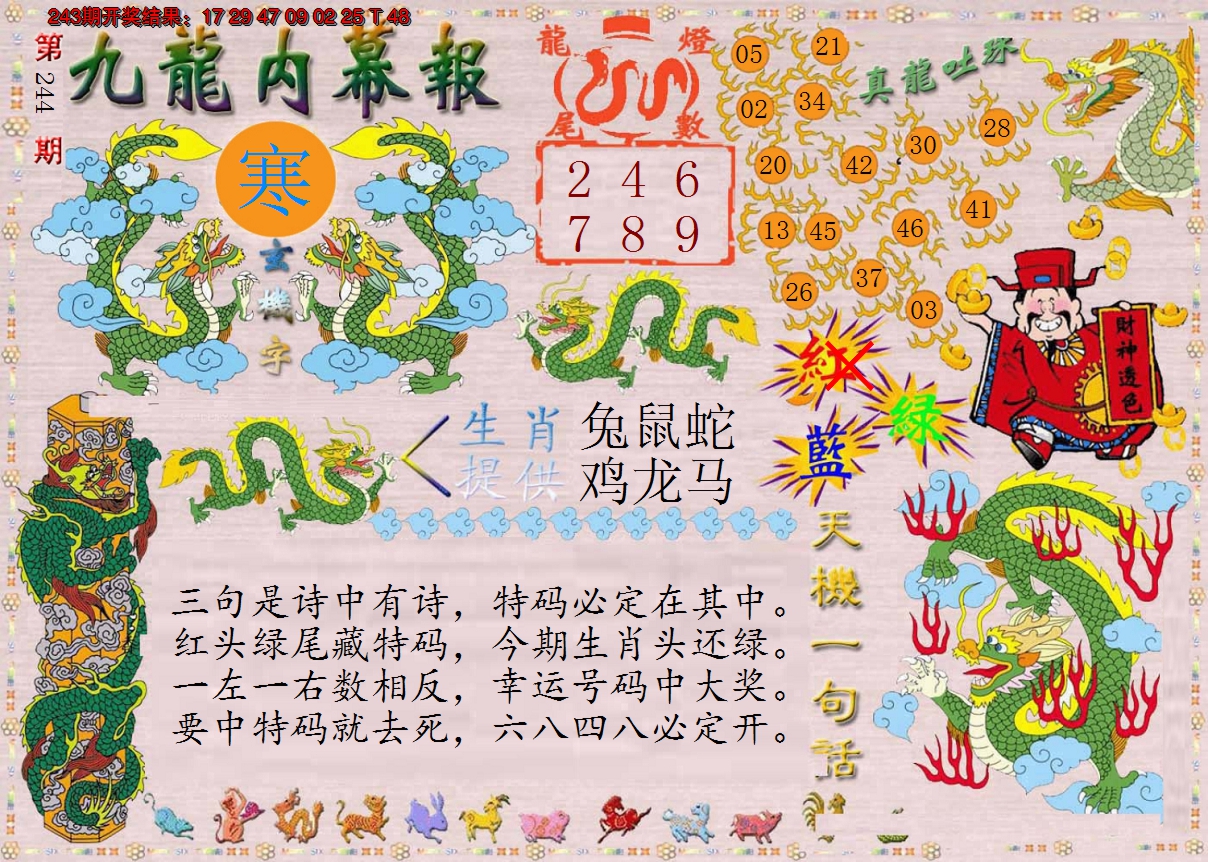 243期开奖结果：17 29 47 09 02 25 T 48
第244期
九龍内幕報
寒
玄機字
龍燈
尾數
2 4 6
7 8 9
真龍吐珠
05 21
02 34
20 42 30 28
13 45 46 41
26 37 03
紅
绿
藍
財神透色
生肖 兔鼠蛇
提供 鸡龙马
天機一句话
三句是诗中有诗，特码必定在其中。
红头绿尾藏特码，今期生肖头还绿。
一左一右数相反，幸运号码中大奖。
要中特码就去死，六八四八必定开。